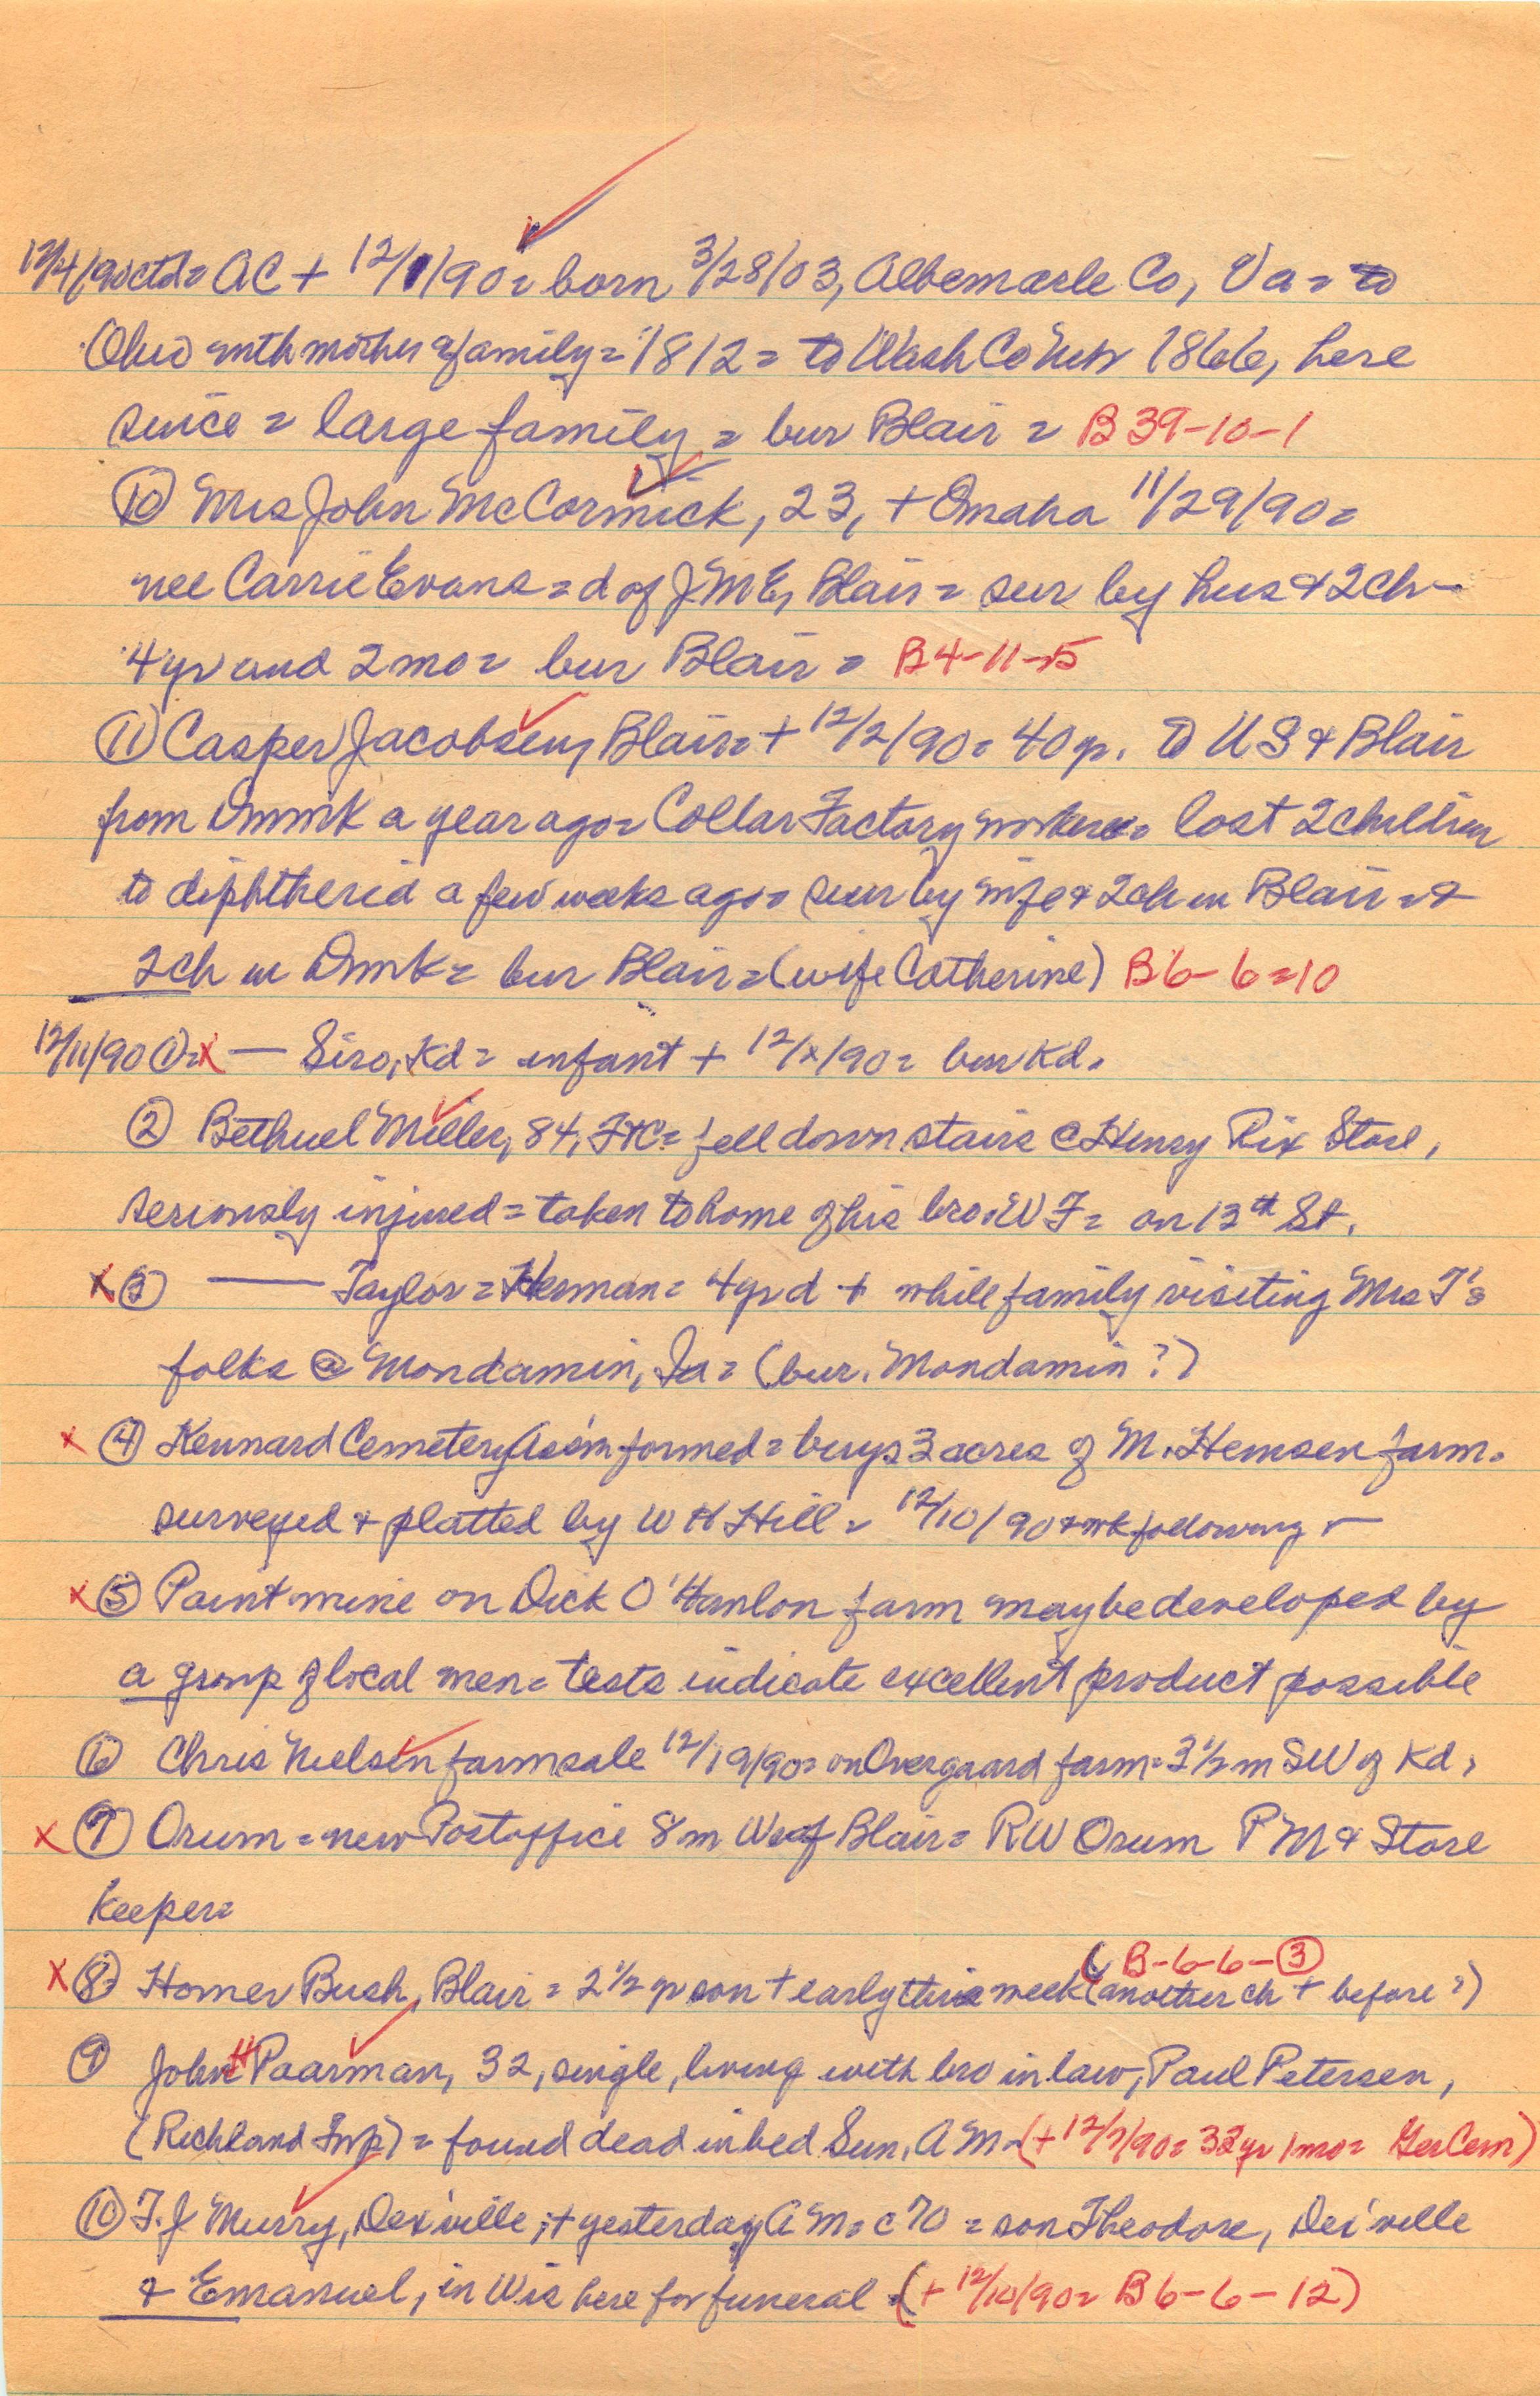 12/4/90 ctd = AC + 12/1/90 = born 3/28/03, Albemarle Co, Va = to
Ohio with mother & family = 1812 = to Wash Co Neb 1866, here
since = large family = bur Blair = B 39-10-1
⑩ Mrs John McCormick, 23, + Omaha 11/29/90 =
nee Carrie Evans = d of J M E, Blair = sur by hus & 2 ch -
4 yr and 2 mo = bur Blair = B 4-11-5
⑪ Casper Jacobsen, Blair = + 12/2/90 = 40 yr. to U S & Blair
from Dnmk a year ago = Collar Factory worker = lost 2 children
to diphtheria a few weeks ago = sur by wife & 2 ch in Blair = &
2 ch in Dnmk = bur Blair = (wife Catherine) B 6-6=10
12/11/90 ① = x — Siro, Kd = infant + 12/x/90 = bur Kd.
② Bethuel Miller, 84, FtC = fell down stairs @ Henry Rix Store,
seriously injured = taken to home of his bro. W F = on 13th St.
x ③ — Taylor = Herman = 4 yr d + while family visiting Mrs T's
folks @ Mondamin, Ia = (bur. Mondamin ?)
x ④ Kennard Cemetery Ass'n formed = buys 3 acres of M. Hemsen farm.
surveyed & platted by W H Hill = 12/10/90 & wk following -
x ⑤ Paint mine on Dick O'Hanlon farm may be developed by
a group of local men = tests indicate excellent product possible
⑥ Chris Nielsen farm sale 12/19/90 = on Overgaard farm = 3 1/2 m SW of Kd,
x ⑦ Orum = new Postoffice 8 m W of Blair = R W Orum P M & Store
keeper =
B-6-6-③
x ⑧ Homer Bush, Blair = 2 1/2 yr son + early this week (another ch + before ?)
⑨ John H Paarman, 32, single, living with bro in law, Paul Petersen,
(Richland Twp) = found dead in bed Sun. A M = (+ 12/7/90 = 32 yr 1 mo = Ger Cem)
⑩ T. J Murry, DeS'ville, + yesterday A M = c 70 = son Theodore, DeS'ville
& Emanuel, in Wis here for funeral = (+ 12/10/90 = B 6-6-12)